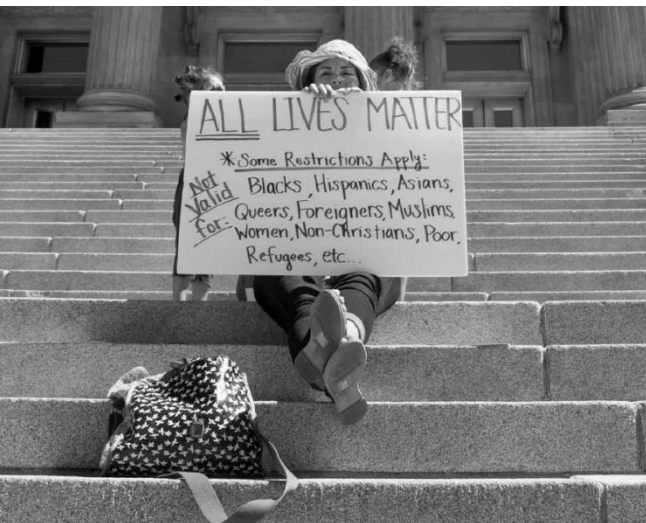 ALL LIVES MATTER
* Some Restrictions Apply:
Not Valid for:
Blacks, Hispanics, Asians,
Queers, Foreigners, Muslims,
Women, Non-Christians, Poor,
Refugees, etc...